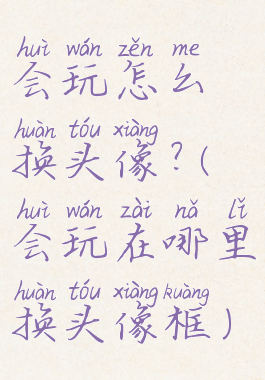 huì wán zěn me
会玩怎么
huàn tóu xiàng
换头像?(
huì wán zài nǎ lǐ
会玩在哪里
huàn tóu xiàng kuàng
换头像框)